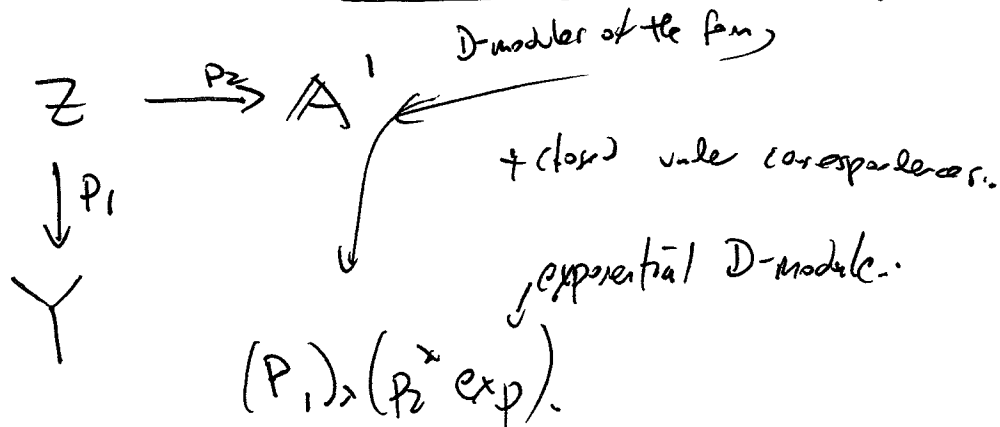 D-modules of the form
Z p₂ → 𝔸¹
+ closed under correspondences.
↓ P₁
exponential D-module.
Y
(P₁)_*(p₂^* exp).